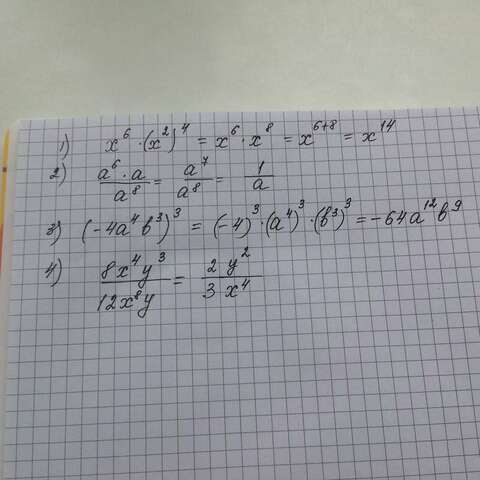 1) x⁶ · (x²)⁴ = x⁶ · x⁸ = x⁶⁺⁸ = x¹⁴
2) (a⁶ · a)/a⁸ = a⁷/a⁸ = 1/a
3) (-4a⁴b³)³ = (-4)³ · (a⁴)³ · (b³)³ = -64a¹²b⁹
4) 8x⁴y³/12x⁸y = 2y²/3x⁴